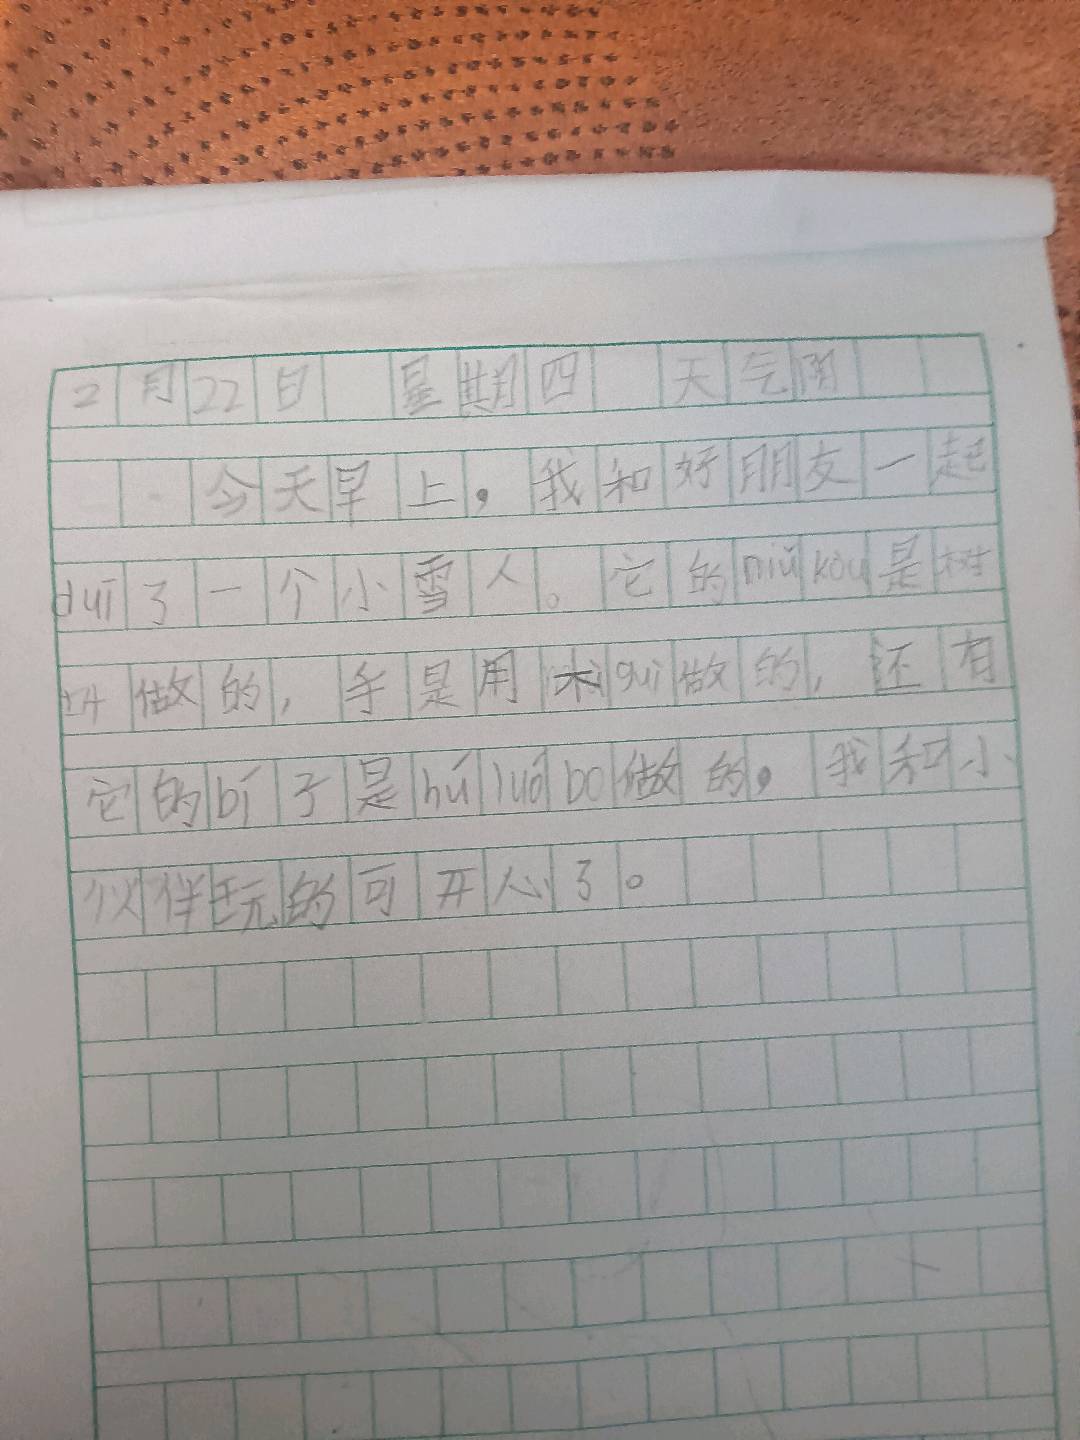 2月22日 星期四 天气阴
今天早上，我和好朋友一起
duī了一个小雪人。它的niǔ kòu是树
叶做的，手是用木gùi做的，还有
它的bí子是hú luó bo做的，我和小
伙伴玩的可开心了。